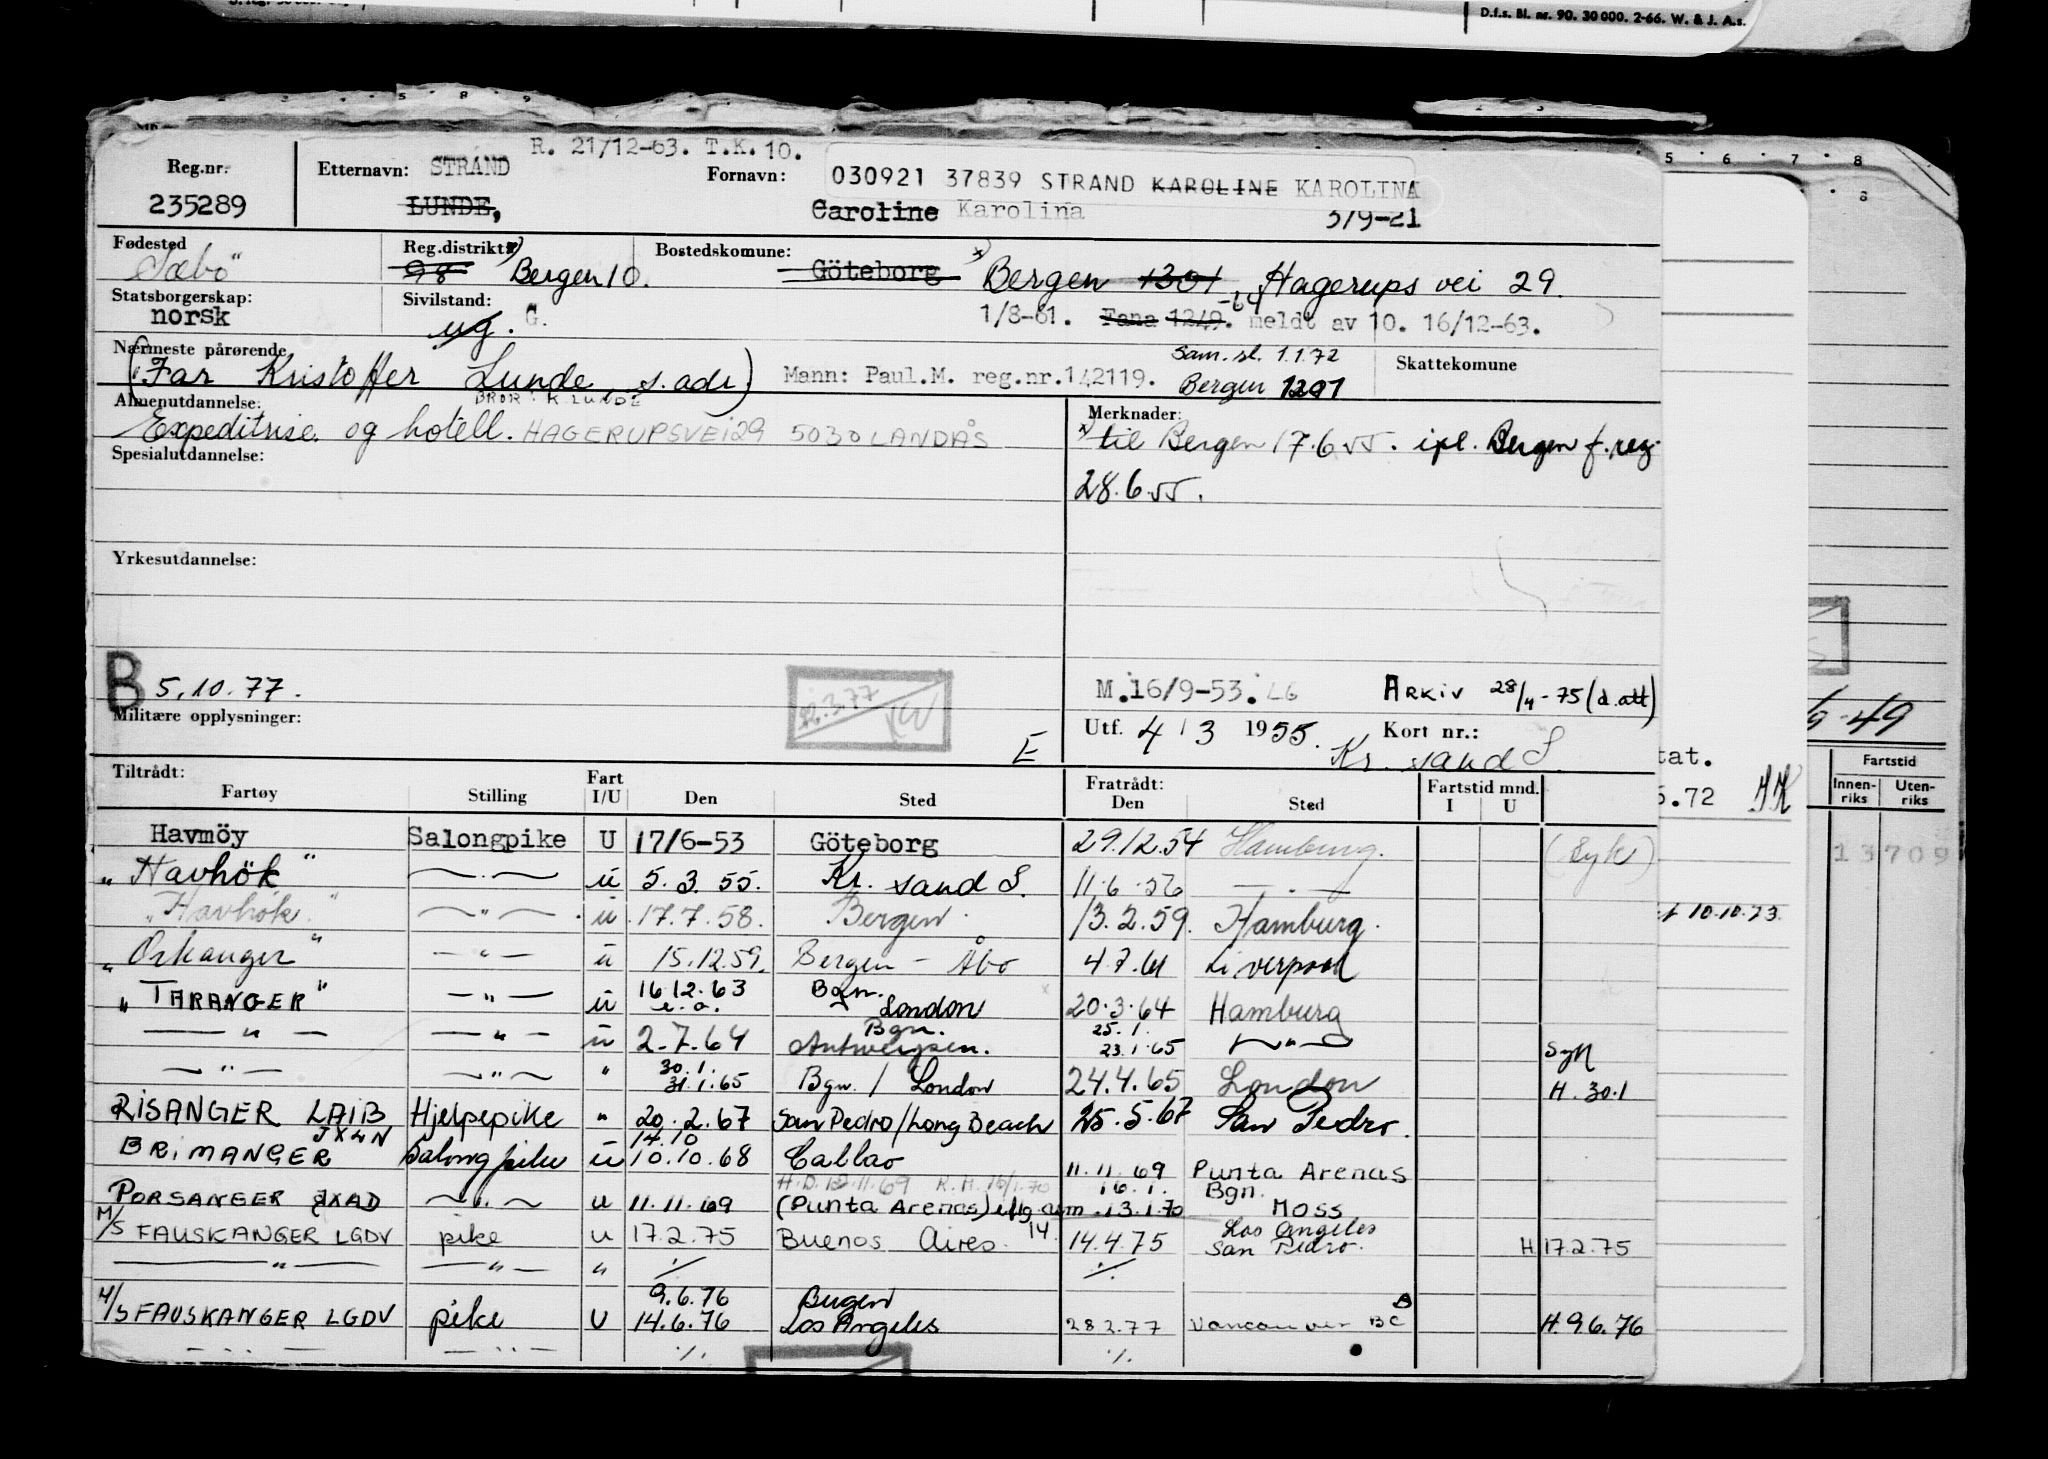 D.f.s. Bl. nr. 90. 30 000. 2-66. W. & J. A.s.
R. 21/12-63. T.K. 10.
Reg.nr. Etternavn: STRAND Fornavn: 030921 37839 STRAND KAROLINE KAROLINA
235289 LUNDE, Caroline Karolina 3/9-21
Fødested Reg.distrikt x) Bostedskomune: x)
Sæbö 98 Bergen 10. Göteborg Bergen 1301, Hagerups vei 29.
Statsborgerskap: Sivilstand:
norsk ug. G. 1/8-61. Fana 1249. -64 meldt av 10. 16/12-63.
Nærmeste pårørende Sam. sl. 1.1.72 Skattekomune
(Far Kristoffer Lunde, s. adr) Mann: Paul.M. reg.nr.142119. Bergen 1201
BROR: K. LUNDE
Almenutdannelse: Merknader:
Expeditrise og hotell. HAGERUPSVEI 29 5030 LANDÅS x) til Bergen 17.6.55. ipl. Bergen f. reg.
Spesialutdannelse: 28.6.55.
Yrkesutdannelse:
B 5.10.77. M. 16/9-53. LG ARKIV 28/4-75 (d. att)
Militære opplysninger: Utf. 4/3 1955. Kort nr.:
E Kr. sand S.
Tiltrådt: Fart Fratrådt: Fartstid mnd.
Fartøy Stilling I/U Den Sted Den Sted I U
Havmöy Salongpike U 17/6-53 Göteborg 29.12.54 Hamburg. (Syk)
"Havhök" — . — u 5.3.55. Kr. sand S. 11.6.56 — . —
"Havhök" — " — u 17.7.58. Bergen 13.2.59. Hamburg.
"Orkanger" — " — u 15.12.59. Bergen - Åbo 4.7.61 Liverpool
"TARANGER" — " — u 16.12.63 e.a. Bgn. London 20.3.64 Hamburg
— " — — " — u 2.7.64 Bgn. Antwerpen. 25.1. 23.1.65 — " — Syk
— " — — " — " 30.1. 31.1.65 Bgn. / London 24.4.65 London H. 30.1
RISANGER LAIB Hjelpepike " 20.2.67 San Pedro/Long Beach 25.5.67 San Pedro.
BRIMANGER JXLN Salongpike u 14.10 10.10.68 Callao 11.11.69 Punta Arenas
PORSANGER JXAD — " — u 11.11.69 (Punta Arenas) 16.1. 13.1.70 Bgn. MOSS
M/S FAUSKANGER LGDV pike u 17.2.75 Buenos Aires. 14. 14.4.75 Los Angeles San Pedro. H 17.2.75
— " — — " — " ./. ./.
M/S FAUSKANGER LGDV pike U 9.6.76 14.6.76 Bergen Los Angeles 28 2.77 Vancouver BC H. 9.6.76
— " — — " — ./. ./.
5 6 7 8
8
-49
tat.
5.72
10.10.73.
Fartstid
Innen-riks Uten-riks
13709